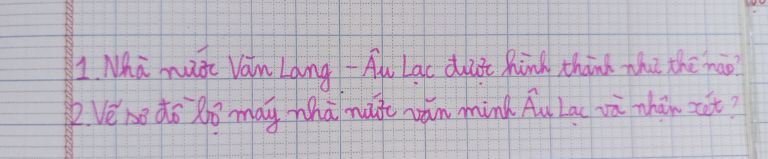 1. Nhà nước Văn Lang - Âu Lạc được hình thành như thế nào?
2. Vẽ sơ đồ bộ máy nhà nước văn minh Âu Lạc và nhận xét?